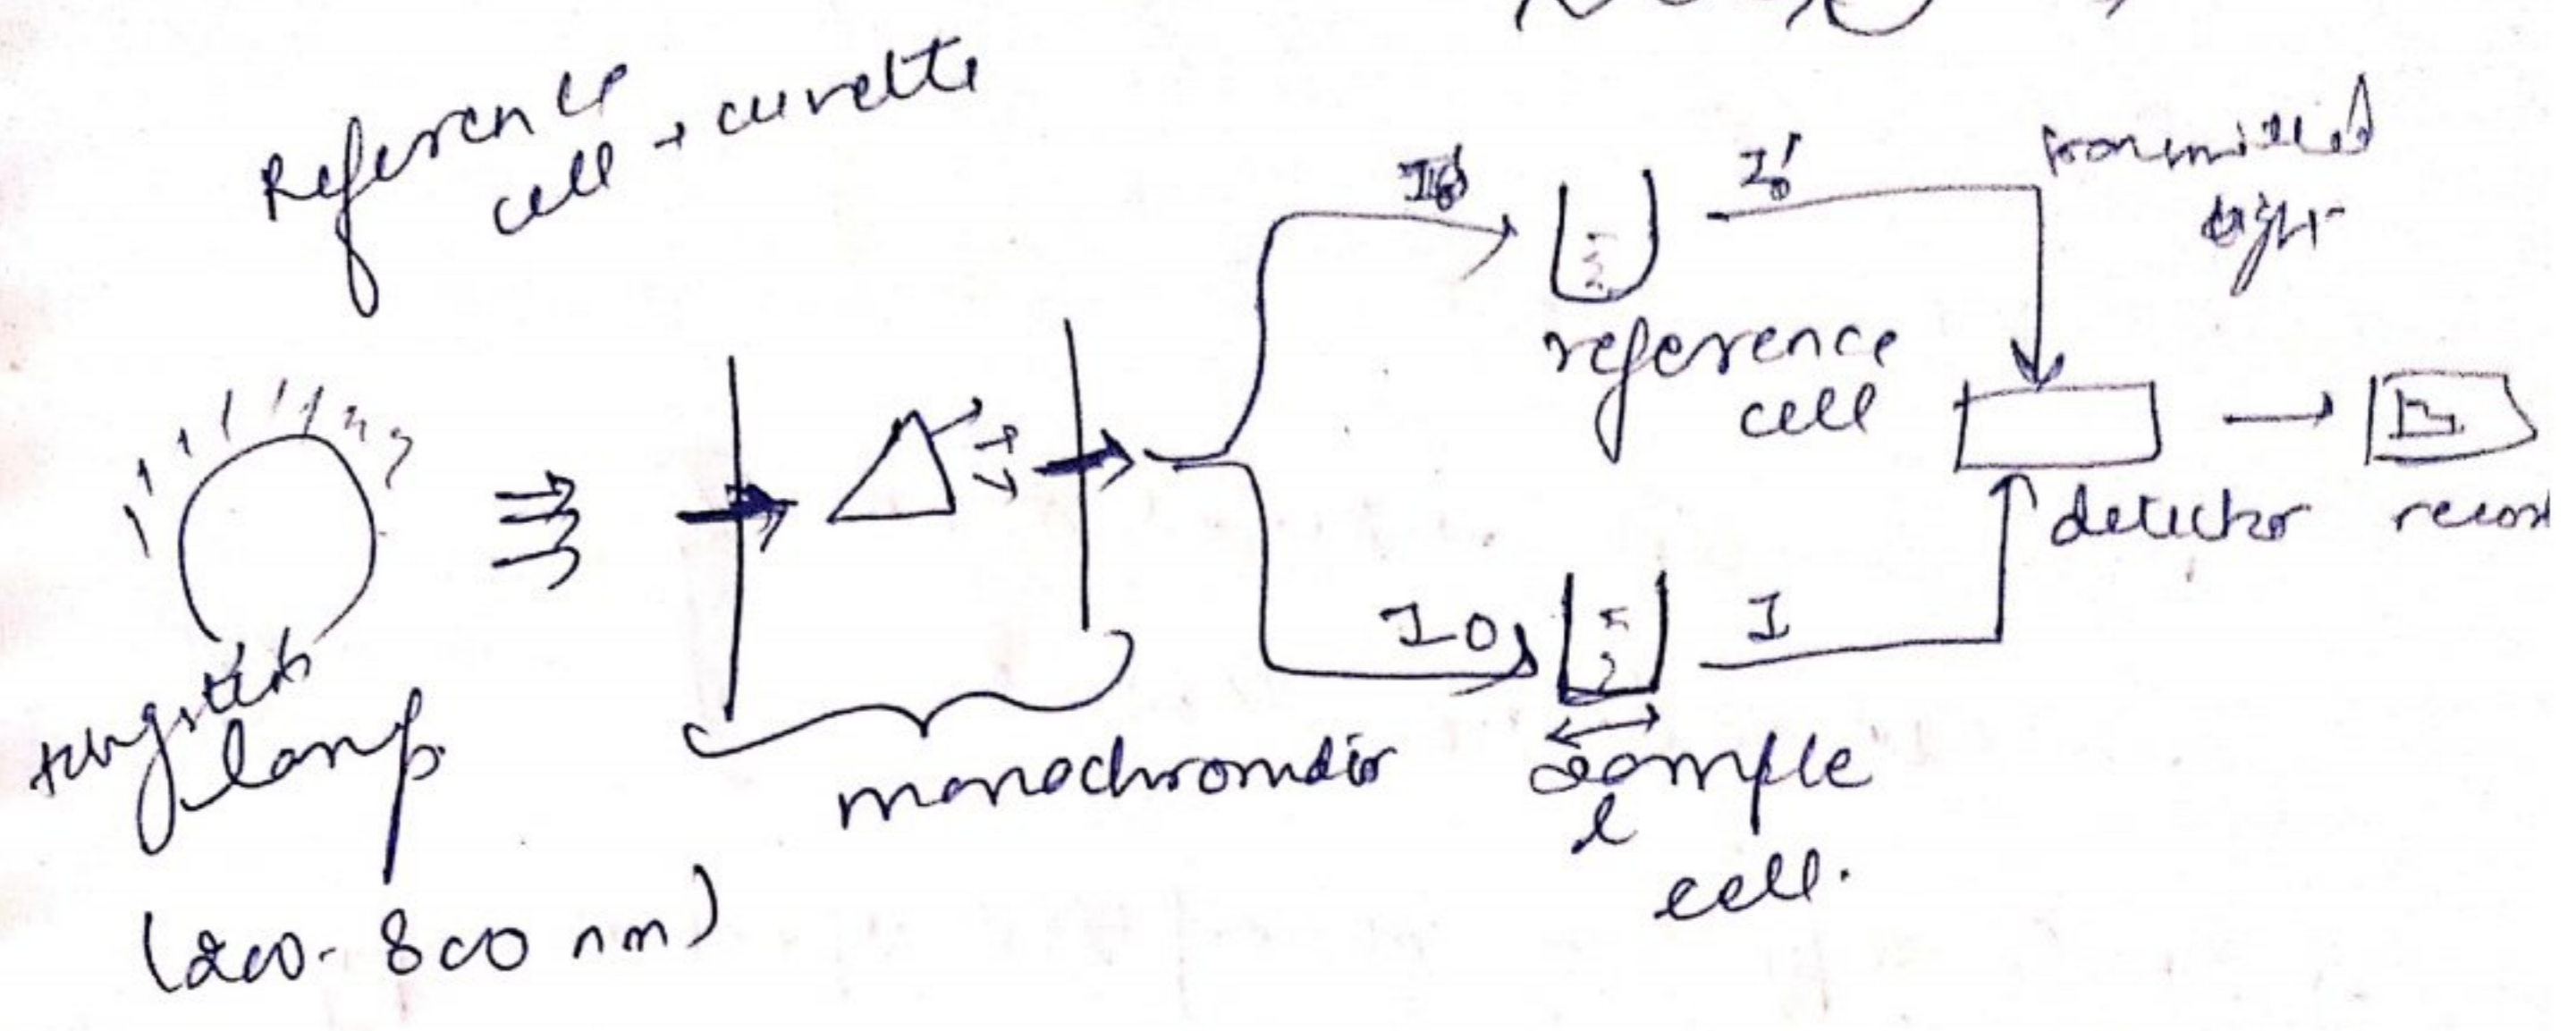 Reference
cell → cuvette
I₀'
transmitted
light
reference
cell
detector
tungsten
lamp
(200-800 nm)
monochromator
I0
I
sample
l
cell.